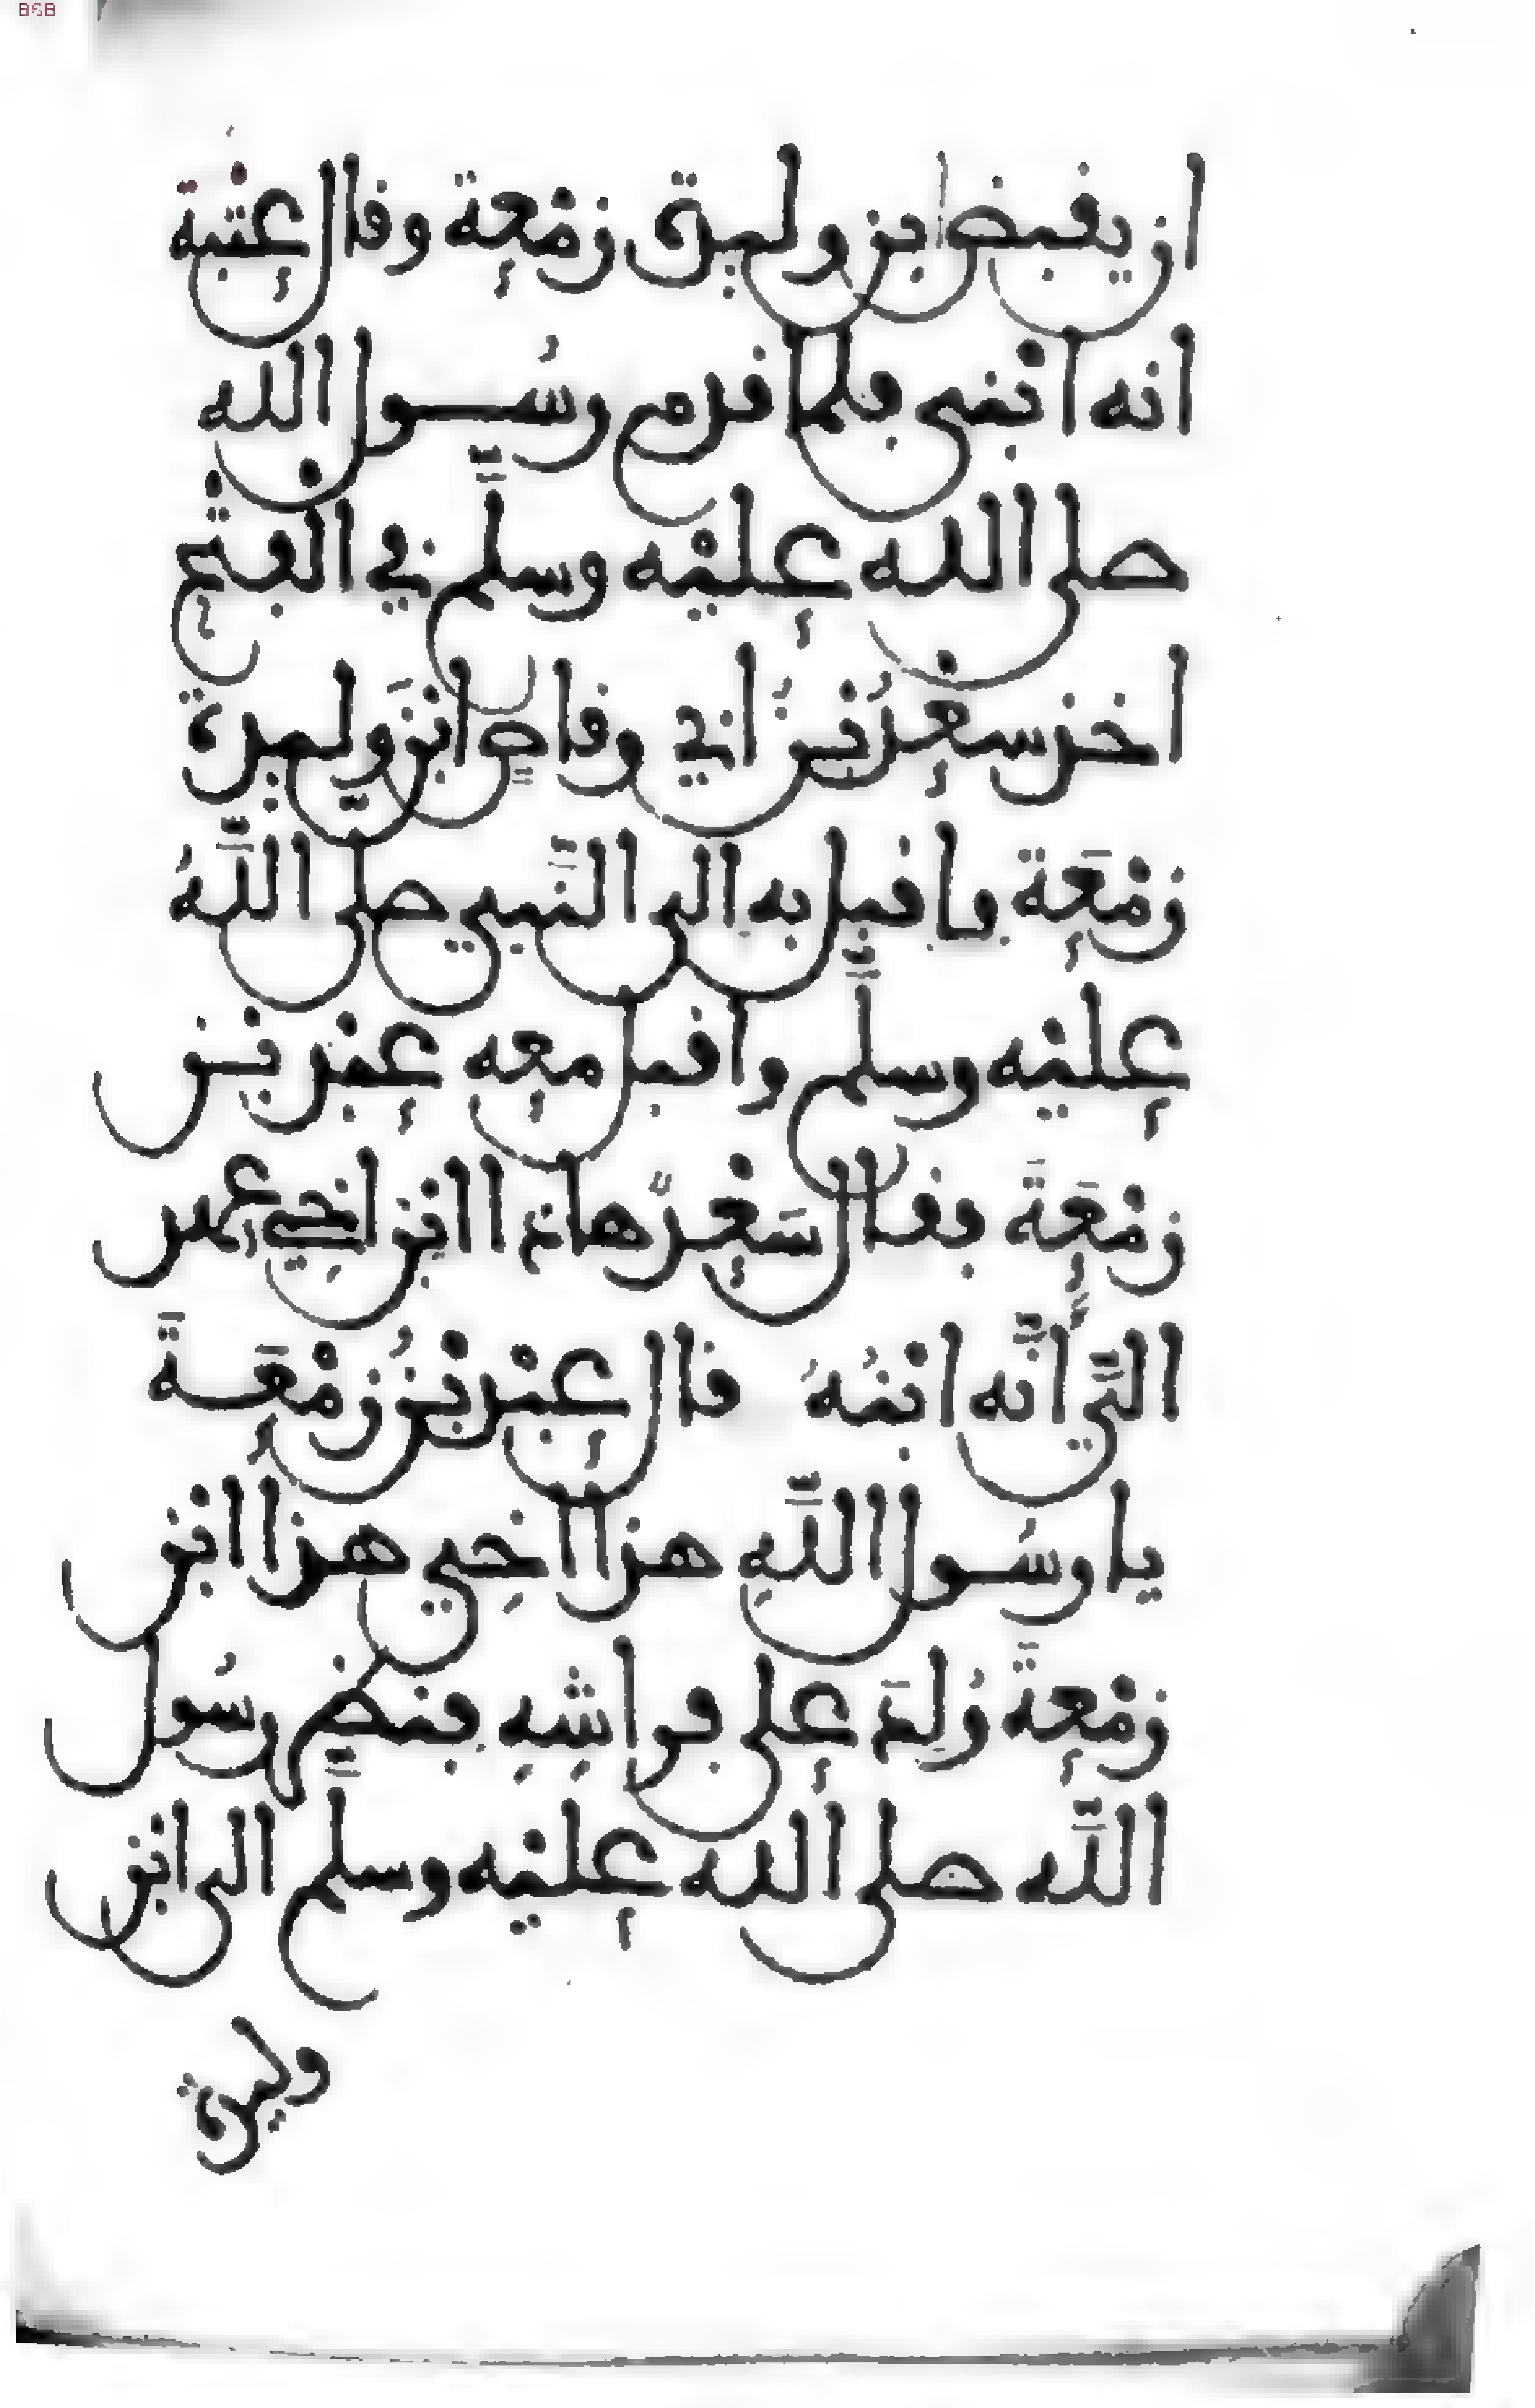 ان يقبض ابن وليدة زمْعة وقال عتبة
انه ابْني فلما قدم رسُول الله
صلى الله عليْه وسلَّم في الفتْح
اخذ سعْدُ بْنُ ابي وقاصٍ ابْنَ وليدة
زمْعَة فاقبل به الى النَّبي صلى اللَّهُ
عليْه وسلَّم واقبل معه عبْد بْن
زمْعَةَ فقال سَعْدٌ هاذا ابْن اخِي عهد
الىَّ أنَّه ابْنُهُ قال عبْد بْنُ زمْعَةَ
يا رسُول اللَّهِ هذا اخِي هذا ابْن
زمْعةَ وُلِدَ على فراشِهِ فنظر رسُول
اللَّه صلى الله عليْه وسلَّم الى ابْن
وليدة